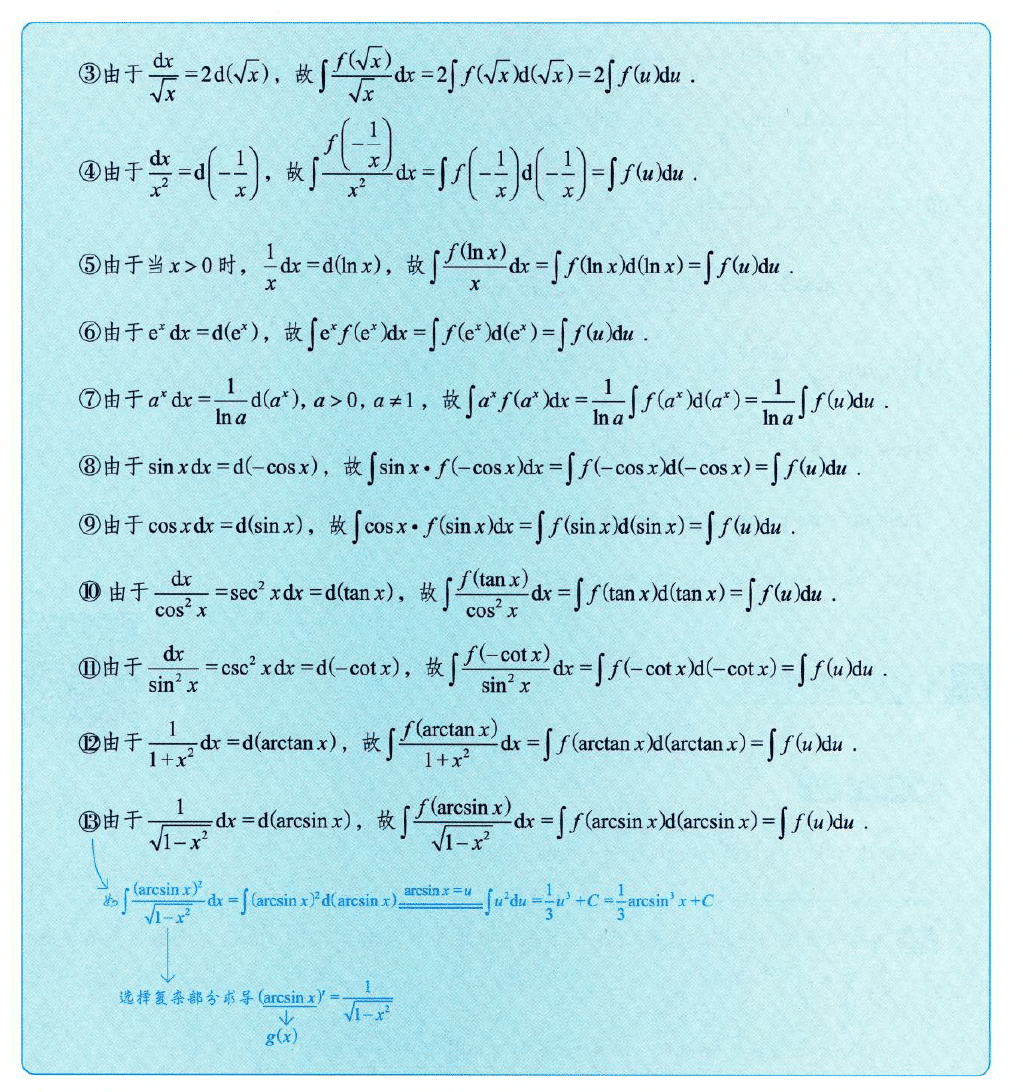 ③由于 $\frac{dx}{\sqrt{x}}=2d(\sqrt{x})$，故 $\int\frac{f(\sqrt{x})}{\sqrt{x}}dx=2\int f(\sqrt{x})d(\sqrt{x})=2\int f(u)du$ .
④由于 $\frac{dx}{x^2}=d\left(-\frac{1}{x}\right)$，故 $\int\frac{f\left(-\frac{1}{x}\right)}{x^2}dx=\int f\left(-\frac{1}{x}\right)d\left(-\frac{1}{x}\right)=\int f(u)du$ .
⑤由于当 $x>0$ 时，$\frac{1}{x}dx=d(\ln x)$，故 $\int\frac{f(\ln x)}{x}dx=\int f(\ln x)d(\ln x)=\int f(u)du$ .
⑥由于 $e^x dx=d(e^x)$，故 $\int e^x f(e^x)dx=\int f(e^x)d(e^x)=\int f(u)du$ .
⑦由于 $a^x dx=\frac{1}{\ln a}d(a^x), a>0, a\neq 1$，故 $\int a^x f(a^x)dx=\frac{1}{\ln a}\int f(a^x)d(a^x)=\frac{1}{\ln a}\int f(u)du$ .
⑧由于 $\sin xdx=d(-\cos x)$，故 $\int\sin x\cdot f(-\cos x)dx=\int f(-\cos x)d(-\cos x)=\int f(u)du$ .
⑨由于 $\cos xdx=d(\sin x)$，故 $\int\cos x\cdot f(\sin x)dx=\int f(\sin x)d(\sin x)=\int f(u)du$ .
⑩由于 $\frac{dx}{\cos^2 x}=\sec^2 xdx=d(\tan x)$，故 $\int\frac{f(\tan x)}{\cos^2 x}dx=\int f(\tan x)d(\tan x)=\int f(u)du$ .
⑪由于 $\frac{dx}{\sin^2 x}=\csc^2 xdx=d(-\cot x)$，故 $\int\frac{f(-\cot x)}{\sin^2 x}dx=\int f(-\cot x)d(-\cot x)=\int f(u)du$ .
⑫由于 $\frac{1}{1+x^2}dx=d(\arctan x)$，故 $\int\frac{f(\arctan x)}{1+x^2}dx=\int f(\arctan x)d(\arctan x)=\int f(u)du$ .
⑬由于 $\frac{1}{\sqrt{1-x^2}}dx=d(\arcsin x)$，故 $\int\frac{f(\arcsin x)}{\sqrt{1-x^2}}dx=\int f(\arcsin x)d(\arcsin x)=\int f(u)du$ .
如 $\int\frac{(\arcsin x)^2}{\sqrt{1-x^2}}dx=\int(\arcsin x)^2d(\arcsin x)\overset{\arcsin x=u}{=}\int u^2du=\frac{1}{3}u^3+C=\frac{1}{3}\arcsin^3 x+C$
选择复杂部分求导 $(\arcsin x)'=\frac{1}{\sqrt{1-x^2}}$
$g(x)$